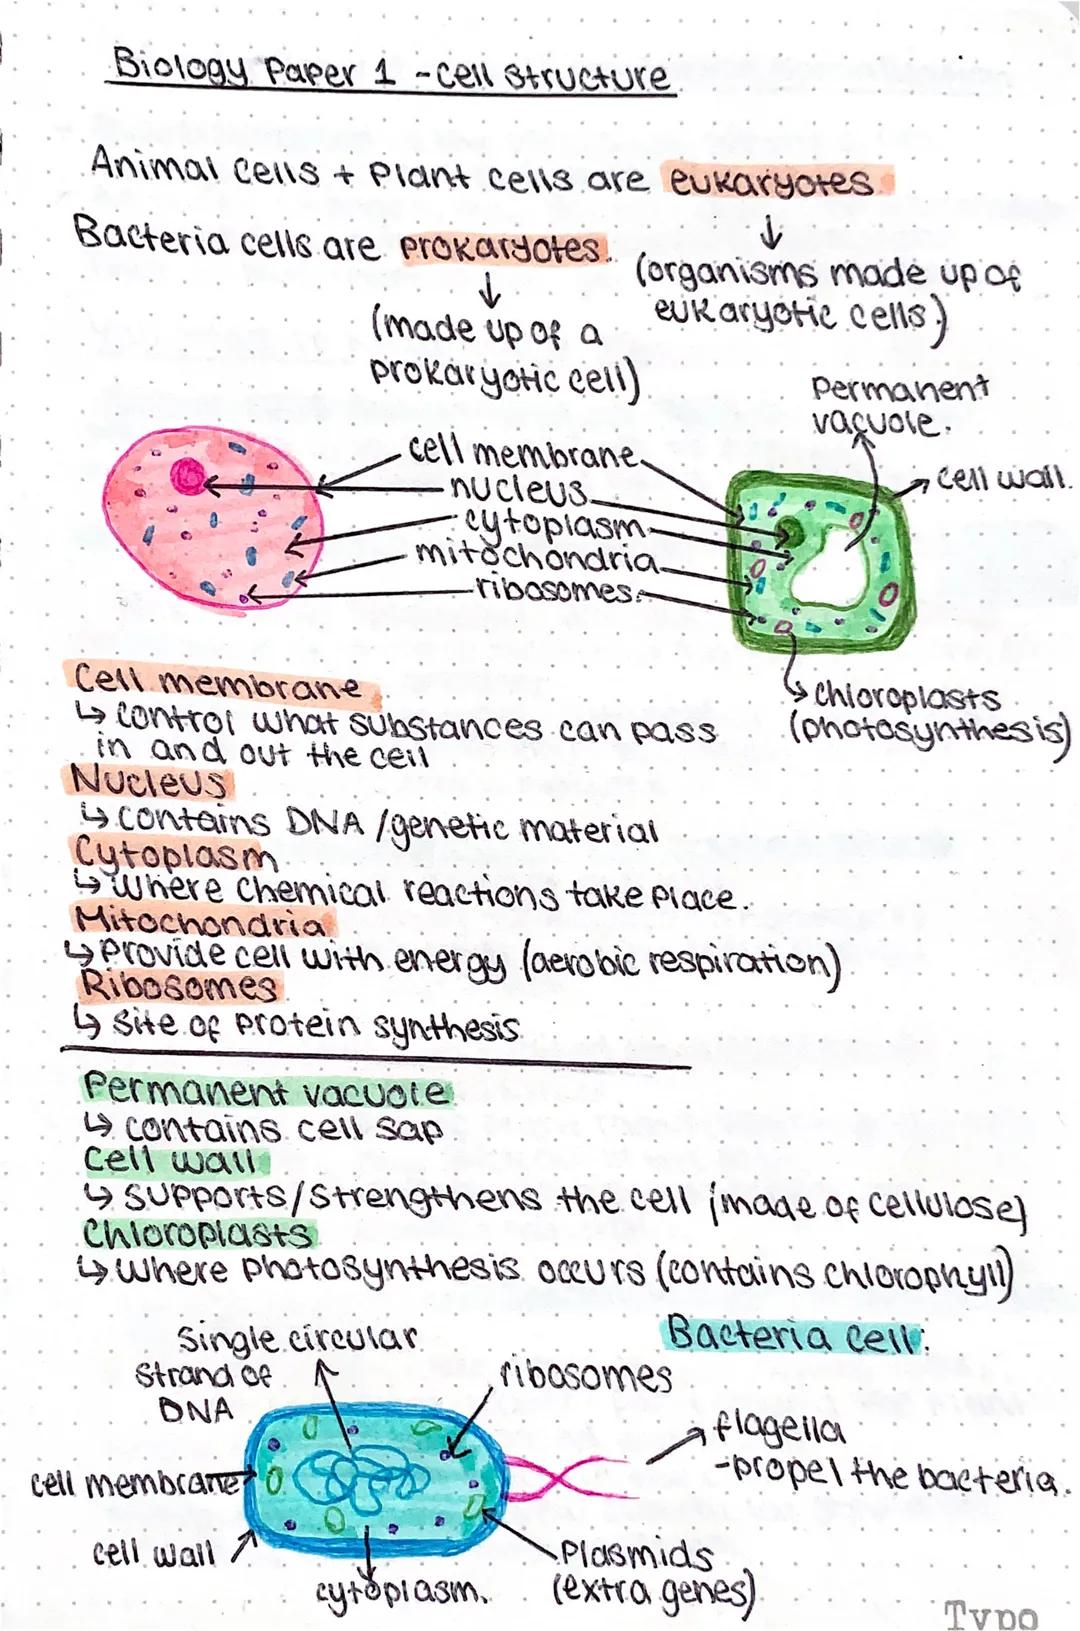 Biology Paper 1 - cell structure
Animal cells + Plant cells are eukaryotes
Bacteria cells are prokaryotes.
(organisms made up of
eukaryotic cells)
(made up of a
prokaryotic cell)
Permanent
vacuole.
cell wall.
cell membrane
nucleus
cytoplasm
mitochondria
ribosomes
chloroplasts
(photosynthesis)
Cell membrane
↳ control what substances can pass
in and out the cell
Nucleus
↳ contains DNA / genetic material
Cytoplasm
↳ where chemical reactions take place.
Mitochondria
↳ Provide cell with energy (aerobic respiration)
Ribosomes
↳ site of protein synthesis
Permanent vacuole
↳ contains cell sap
Cell wall
↳ supports/strengthens the cell (made of cellulose)
Chloroplasts
↳ where photosynthesis occurs (contains chlorophyll)
Bacteria cell:
Single circular
strand of
DNA
ribosomes
flagella
-propel the bacteria.
cell membrane
cell wall
cytoplasm.
Plasmids
(extra genes)